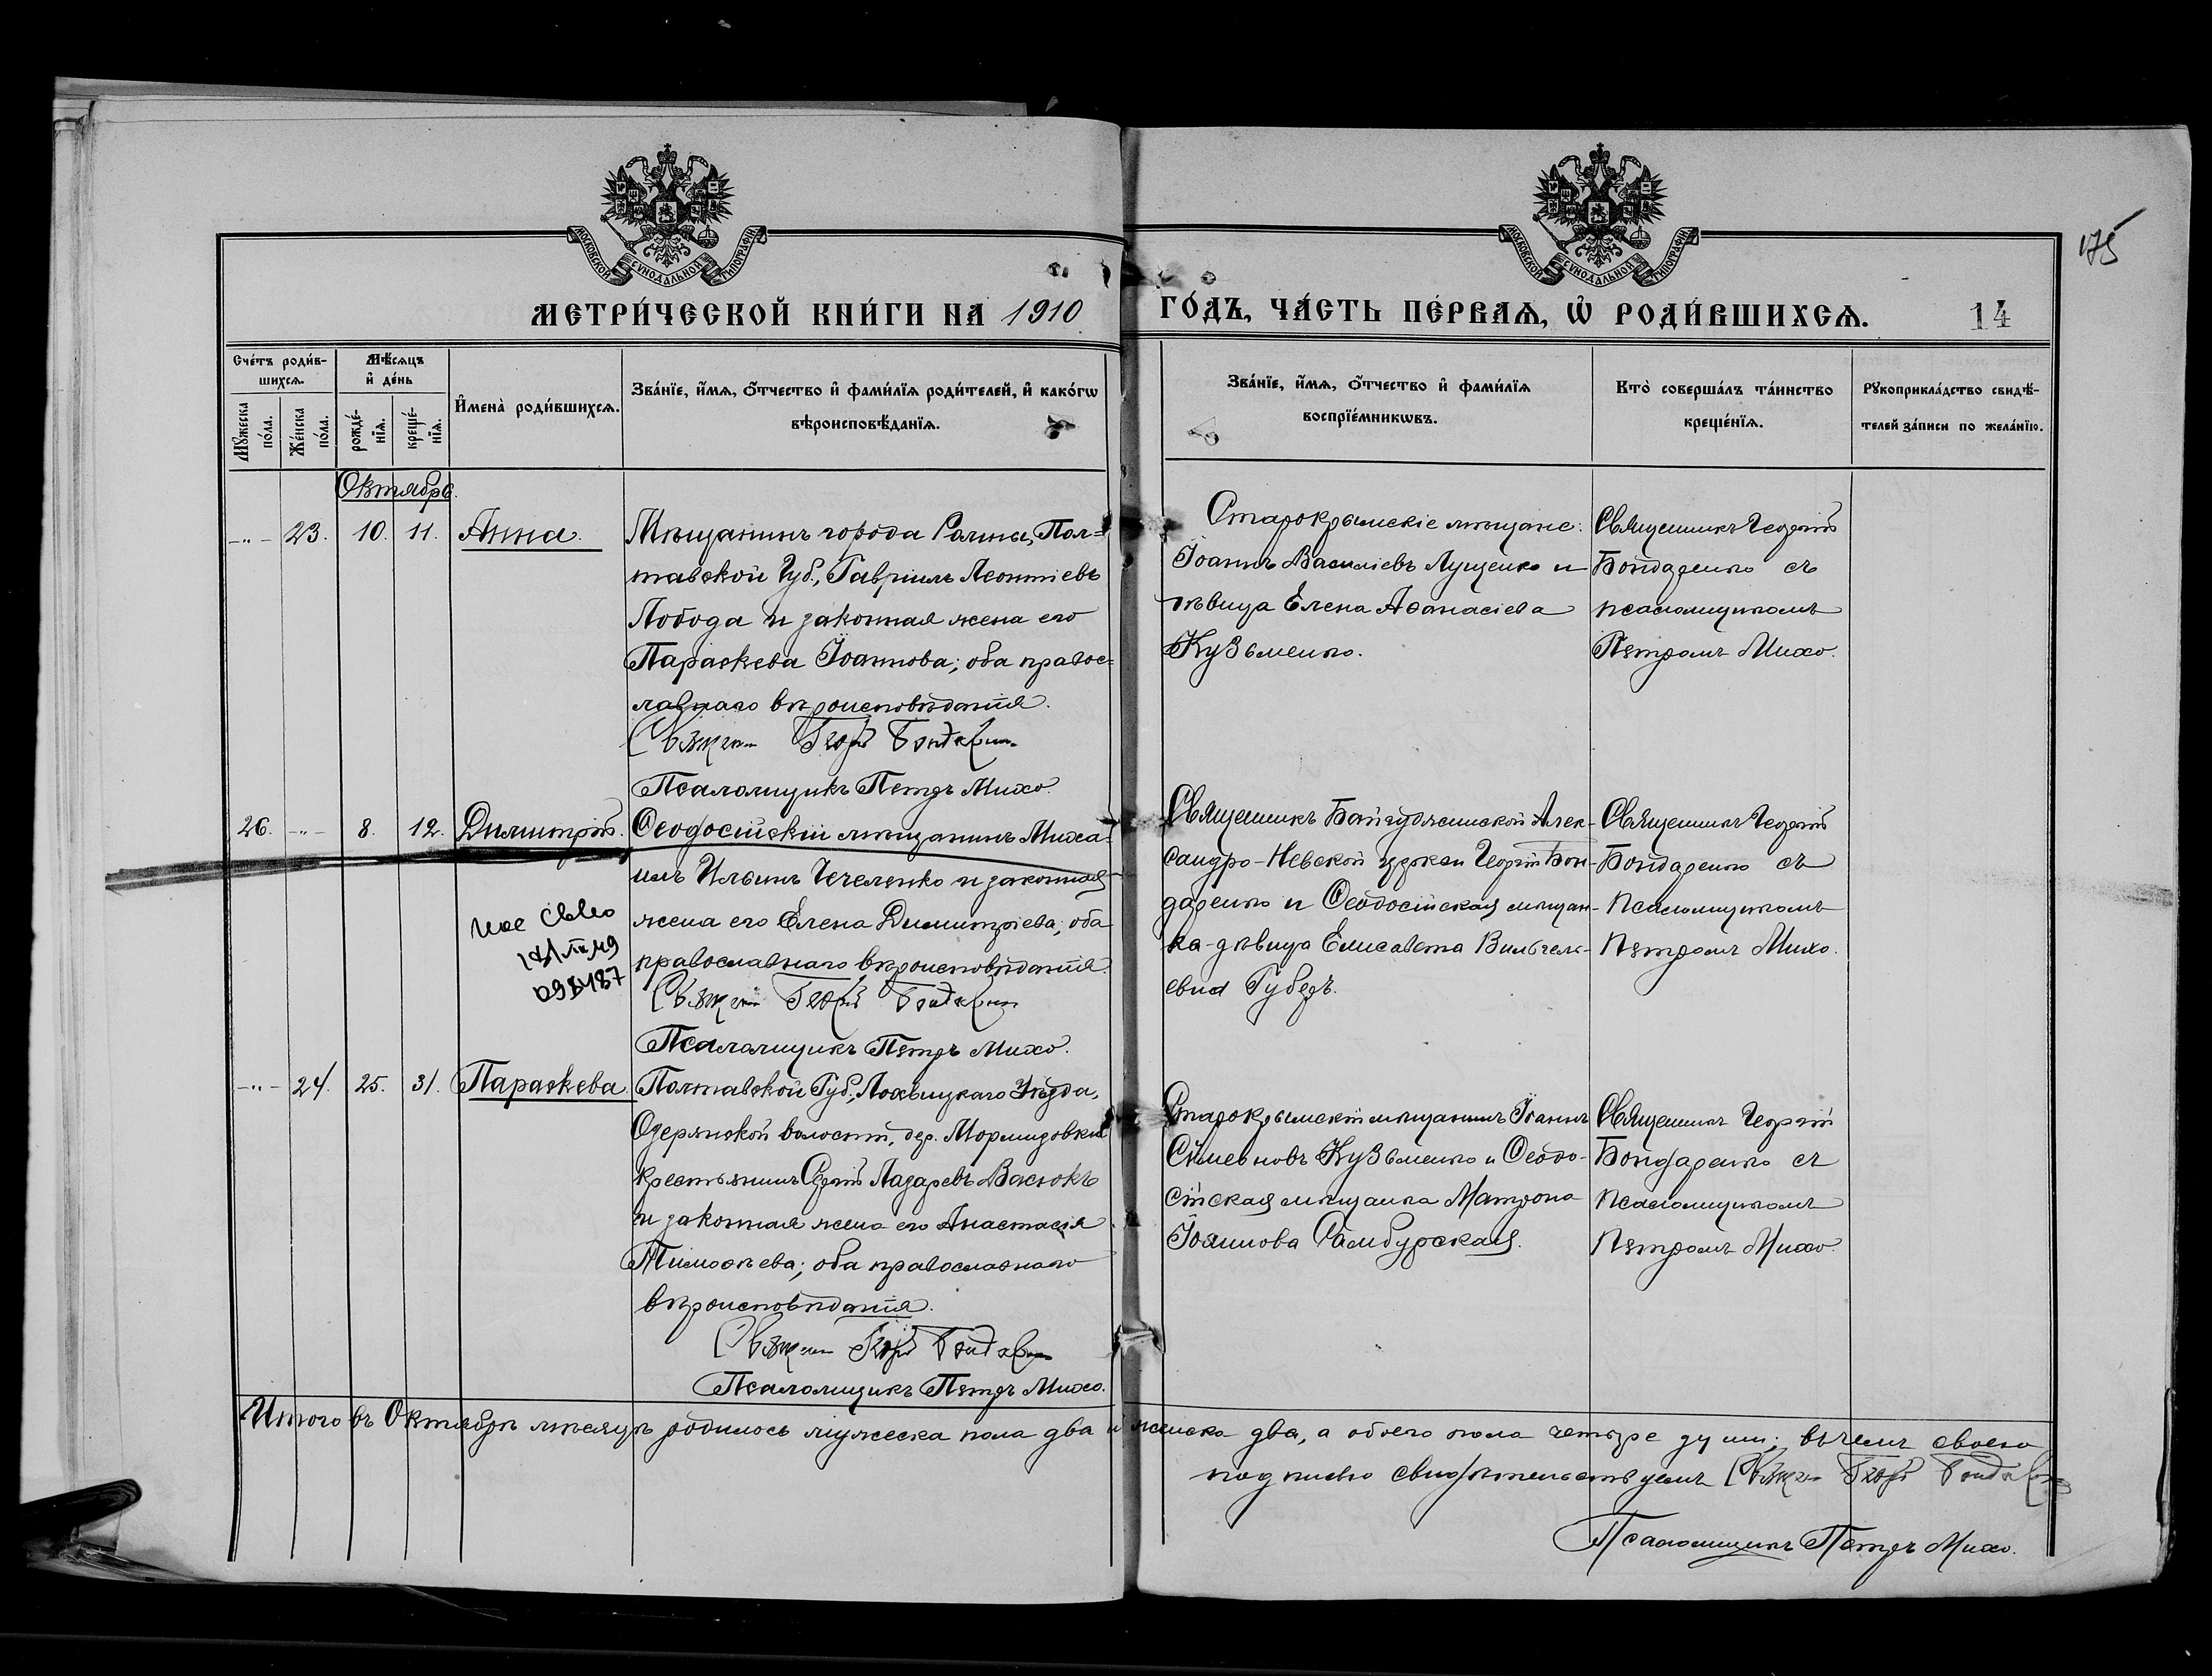 175
МОСКОВСКОЙ СѴНОДАЛЬНОЙ ТИПОГРАФІИ
МОСКОВСКОЙ СѴНОДАЛЬНОЙ ТИПОГРАФІИ
МЕТРИ́ЧЕСКОЙ КНИ́ГИ НА 1910 ГО́ДЪ, ЧА́СТЬ ПЕ́РВАѦ, Ѡ҆ РОДИ́ВШИХСѦ. 14
Сче́тъ роди́в-
шихсѧ.
Мꙋ́жеска
по́ла.
Же́нска
по́ла.
Мѣ́сѧцъ
и҆ де́нь
рожде́-
нїѧ.
креще́-
нїѧ.
И҆мена̀ роди́вшихсѧ.
Зва́нїе, и҆́мѧ, ѻ҆́тчество и҆ фами́лїѧ роди́телей, и҆ како́гѡ
вѣроисповѣ́данїѧ.
Зва́нїе, и҆́мѧ, ѻ҆́тчество и҆ фами́лїѧ
воспрїе́мникѡвъ.
Кто̀ соверша́лъ та́инство
креще́нїѧ.
Рꙋкоприкла́дство свидѣ́-
телей за́писи по жела́нїю.
Октябрь.
-"- 23. 10. 11. Анна.
Мѣщанинъ города Ромны, Пол=
тавской Губ., Гавріилъ Леонтіевъ
Лобода и законная жена его
Параскева Іоаннова; оба правос=
лавнаго вѣроисповѣданія.
Священ Георгій Бондаренко
Псаломщикъ Петръ Михо.
Старокрымскіе мѣщане:
Іоаннъ Василіевъ Лущенко и
дѣвица Елена Аѳанасіева
Кузьменко.
Священникъ Георгій
Бондаренко съ
псаломщикомъ
Петромъ Михо.
26. -"- 8. 12. Димитрій.
Ѳеодосійскій мѣщанинъ Миха-
илъ Ильинъ Чеченко и законная
жена его Елена Димитріева; оба
православнаго вѣроисповѣданія.
Священ Георгій Бондаренко
Псаломщикъ Петръ Михо.
Священникъ Александро-Невской Алек-
сандро-Невской церкви Георгій Бон-
даренко и Ѳеодосійская мѣщан-
ка-дѣвица Елисавета Вильгель-
Губеръ.
Священникъ Георгій
Бондаренко съ
псаломщикомъ
Петромъ Михо.
-"- 24. 25. 31. Параскева.
Полтавской Губ., Лохвицкаго Уѣзда,
волости, дер.
крестьянинъ Сергій Лазаревъ Васюкъ
и законная жена его Анастасія
Тимоѳеева; оба православнаго
вѣроисповѣданія.
Священ Георгій Бондаренко
Псаломщикъ Петръ Михо.
Старокрымскій мѣщанинъ Іоаннъ
Симеоновъ Кузьменко и Ѳеодо-
сійская мѣщанка Матрона
Іоаннова Самбурская.
Священникъ Георгій
Бондаренко съ
псаломщикомъ
Петромъ Михо.
Итого въ Октябрѣ мѣсяцѣ родилось мужеска пола два и женска два, а обоего пола четыре души; въ чемъ своею
подписью свидѣтельствуемъ Священ Георгій Бондаренко
Псаломщикъ Петръ Михо.